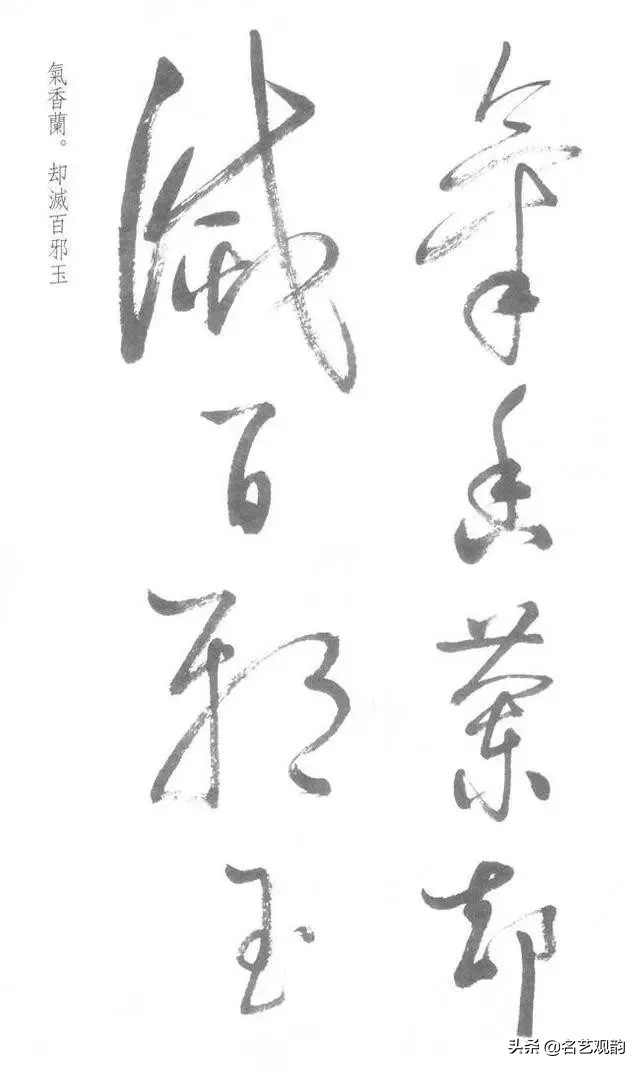 氣香蘭却
滅百邪玉
氣香蘭。却滅百邪玉
头条 @名艺观韵